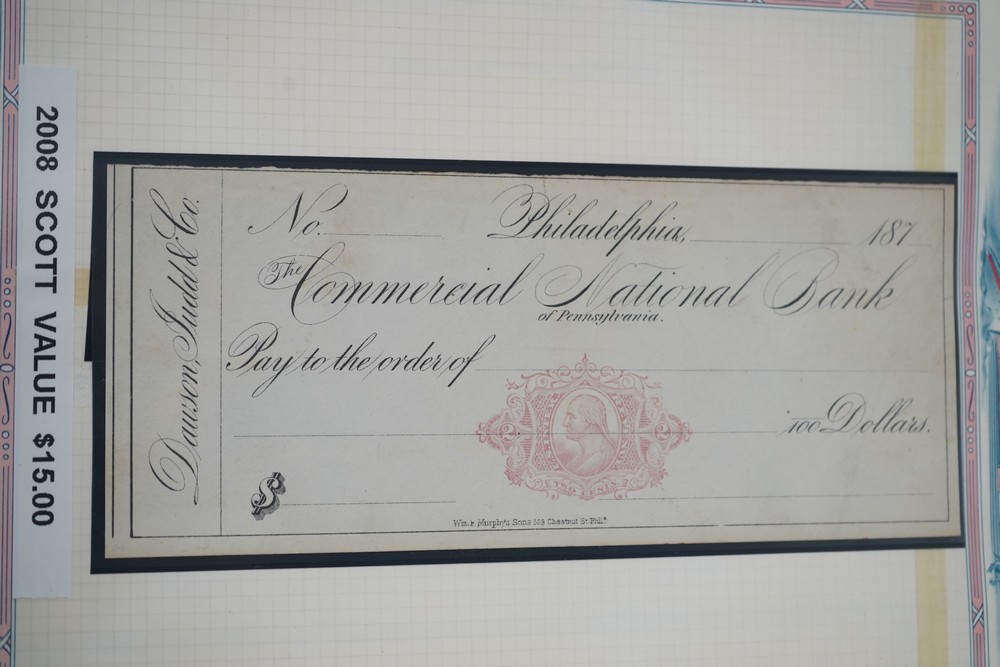 2008 SCOTT VALUE $15.00
Dawson, Judd & Co.
No. Philadelphia, 187
The Commercial National Bank
of Pennsylvania.
Pay to the order of
100 Dollars.
2 2
TWO CENTS
$
Wm. F. Murphy's Sons 509 Chestnut St Phil.ª